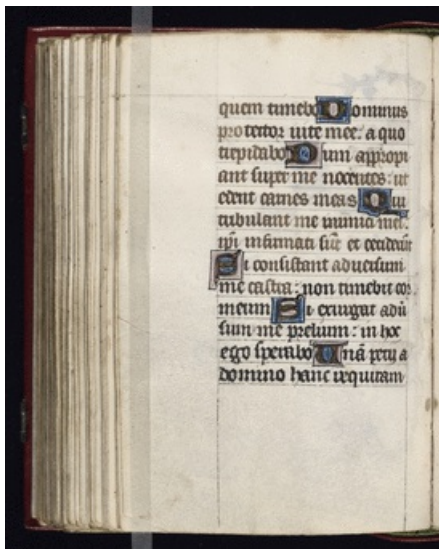 quem timebo Dominus
protector uite mee: a quo
trepidabo Dum appropi
ant super me nocentes: ut
edent carnes meas Qui
tribulant me inimici mei:
ipi infirmati sūt et ceciderūt
Si consistant aduersum
me castra: non timebit cor
meum Si exurgat adū
sum me prelium: in hoc
ego sperabo Unā petij a
domino hanc requiram